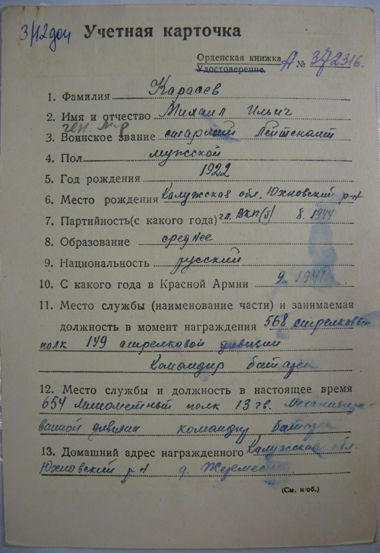 3/12 доп Учетная карточка
Орденская книжка А № 372316
Удостоверение
1. Фамилия Карасев
2. Имя и отчество Михаил Ильич
3. Воинское звание старший лейтенант
4. Пол мужской
5. Год рождения 1922
6. Место рождения Калужская обл. Юхновский р-н
7. Партийность (с какого года) чл. ВКП(б) 8.1944
8. Образование среднее
9. Национальность русский
10. С какого года в Красной Армии 9.1941
11. Место службы (наименование части) и занимаемая
должность в момент награждения 568 стрелковый
полк 149 стрелковой дивизии
Командир батареи
12. Место службы и должность в настоящее время
654 минометный полк 13 гв. механизиро-
ванной дивизии командир батареи
13. Домашний адрес награжденного Калужская обл.
Юхновский р-н д.
(См. н/об.)